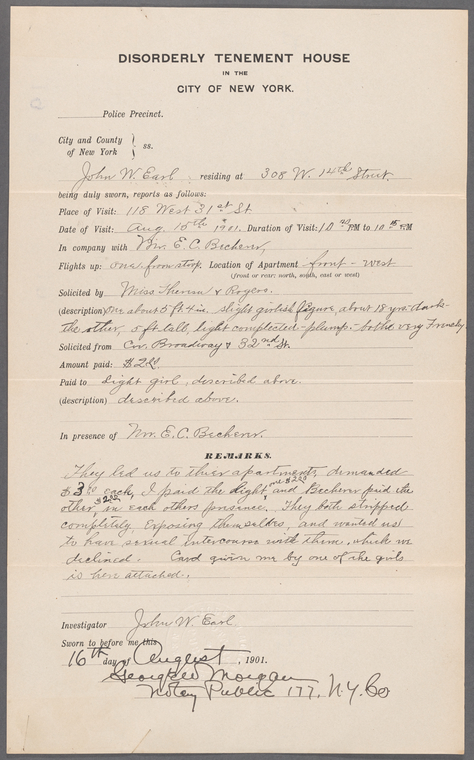 DISORDERLY TENEMENT HOUSE
IN THE
CITY OF NEW YORK.
Police Precinct.
City and County
of New York } ss.
John W. Earl residing at 308 W. 14th Street
being duly sworn, reports as follows:
Place of Visit: 118 West 31st St
Date of Visit: Aug. 15th 1901. Duration of Visit: PM to 10 P.M
In company with Mr. E. C. Becherer,
Flights up: one from stoop. Location of Apartment front - west
(front or rear; north, south, east or west)
Solicited by Miss &
(description) One about 5 ft 4 in. slight girlish figure, about 18 yrs. dark
the other, 5 ft tall, light complected - plump. - both very
Solicited from Cor. Broadway & 32nd St.
Amount paid: $2.00.
Paid to slight girl, described above.
(description) described above.
In presence of Mr. E. C. Becherer.
REMARKS.
They led us to their apartment, demanded
$3.00 each, I paid the light one $2.00 and Becherer paid the
other $2.00, in each others presence. They both stripped
completely exposing themselves, and wanted us
to have sexual intercourse with them, which we
declined. Card given me by one of the girls
is here attached.
Investigator John W. Earl
Sworn to before me this
16th day of August, 1901.
George W Morgan
Notary Public 177, N.Y. Co